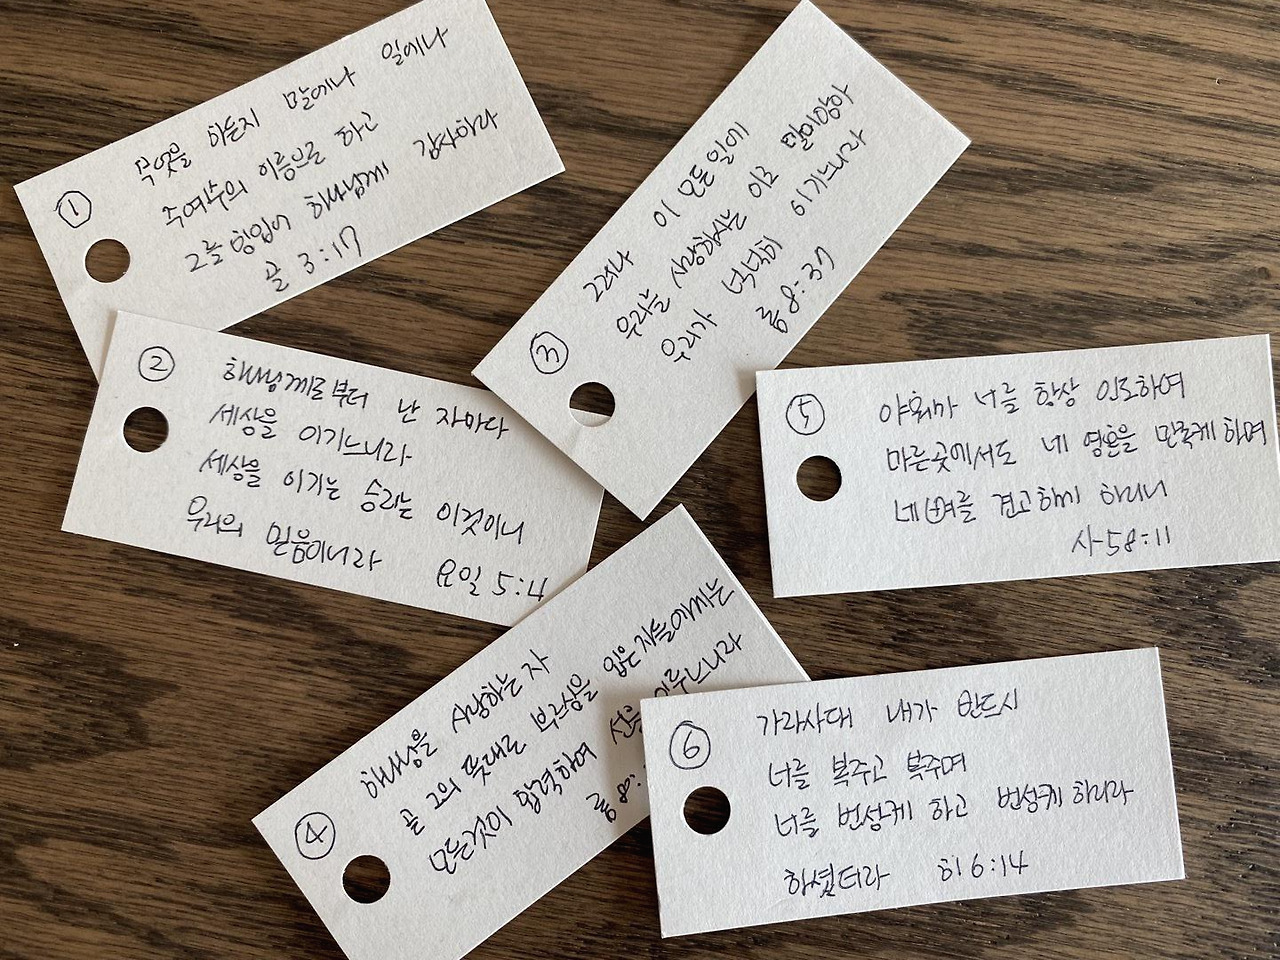 ①
무엇을 하든지 말에나 일에나
주예수의 이름으로 하고
그를 힘입어 하나님께 감사하라
골 3:17
②
하나님께로부터 난 자마다
세상을 이기느니라
세상을 이기는 승리는 이것이니
우리의 믿음이니라 요일 5:4
③
그러나 이 모든 일에
우리를 사랑하시는 이로 말미암아
우리가 넉넉히 이기느니라
롬 8:37
④
하나님을 사랑하는 자
곧 그의 뜻대로 부르심을 입은 자들에게는
모든것이 합력하여 선을 이루느니라
롬 8:
⑤
야훼가 너를 항상 인도하여
마른곳에서도 네 영혼을 만족케하며
네 뼈를 견고하게 하리니
사 58:11
⑥
가라사대 내가 반드시
너를 복주고 복주며
너를 번성케 하고 번성케 하리라
하셨더라 히 6:14